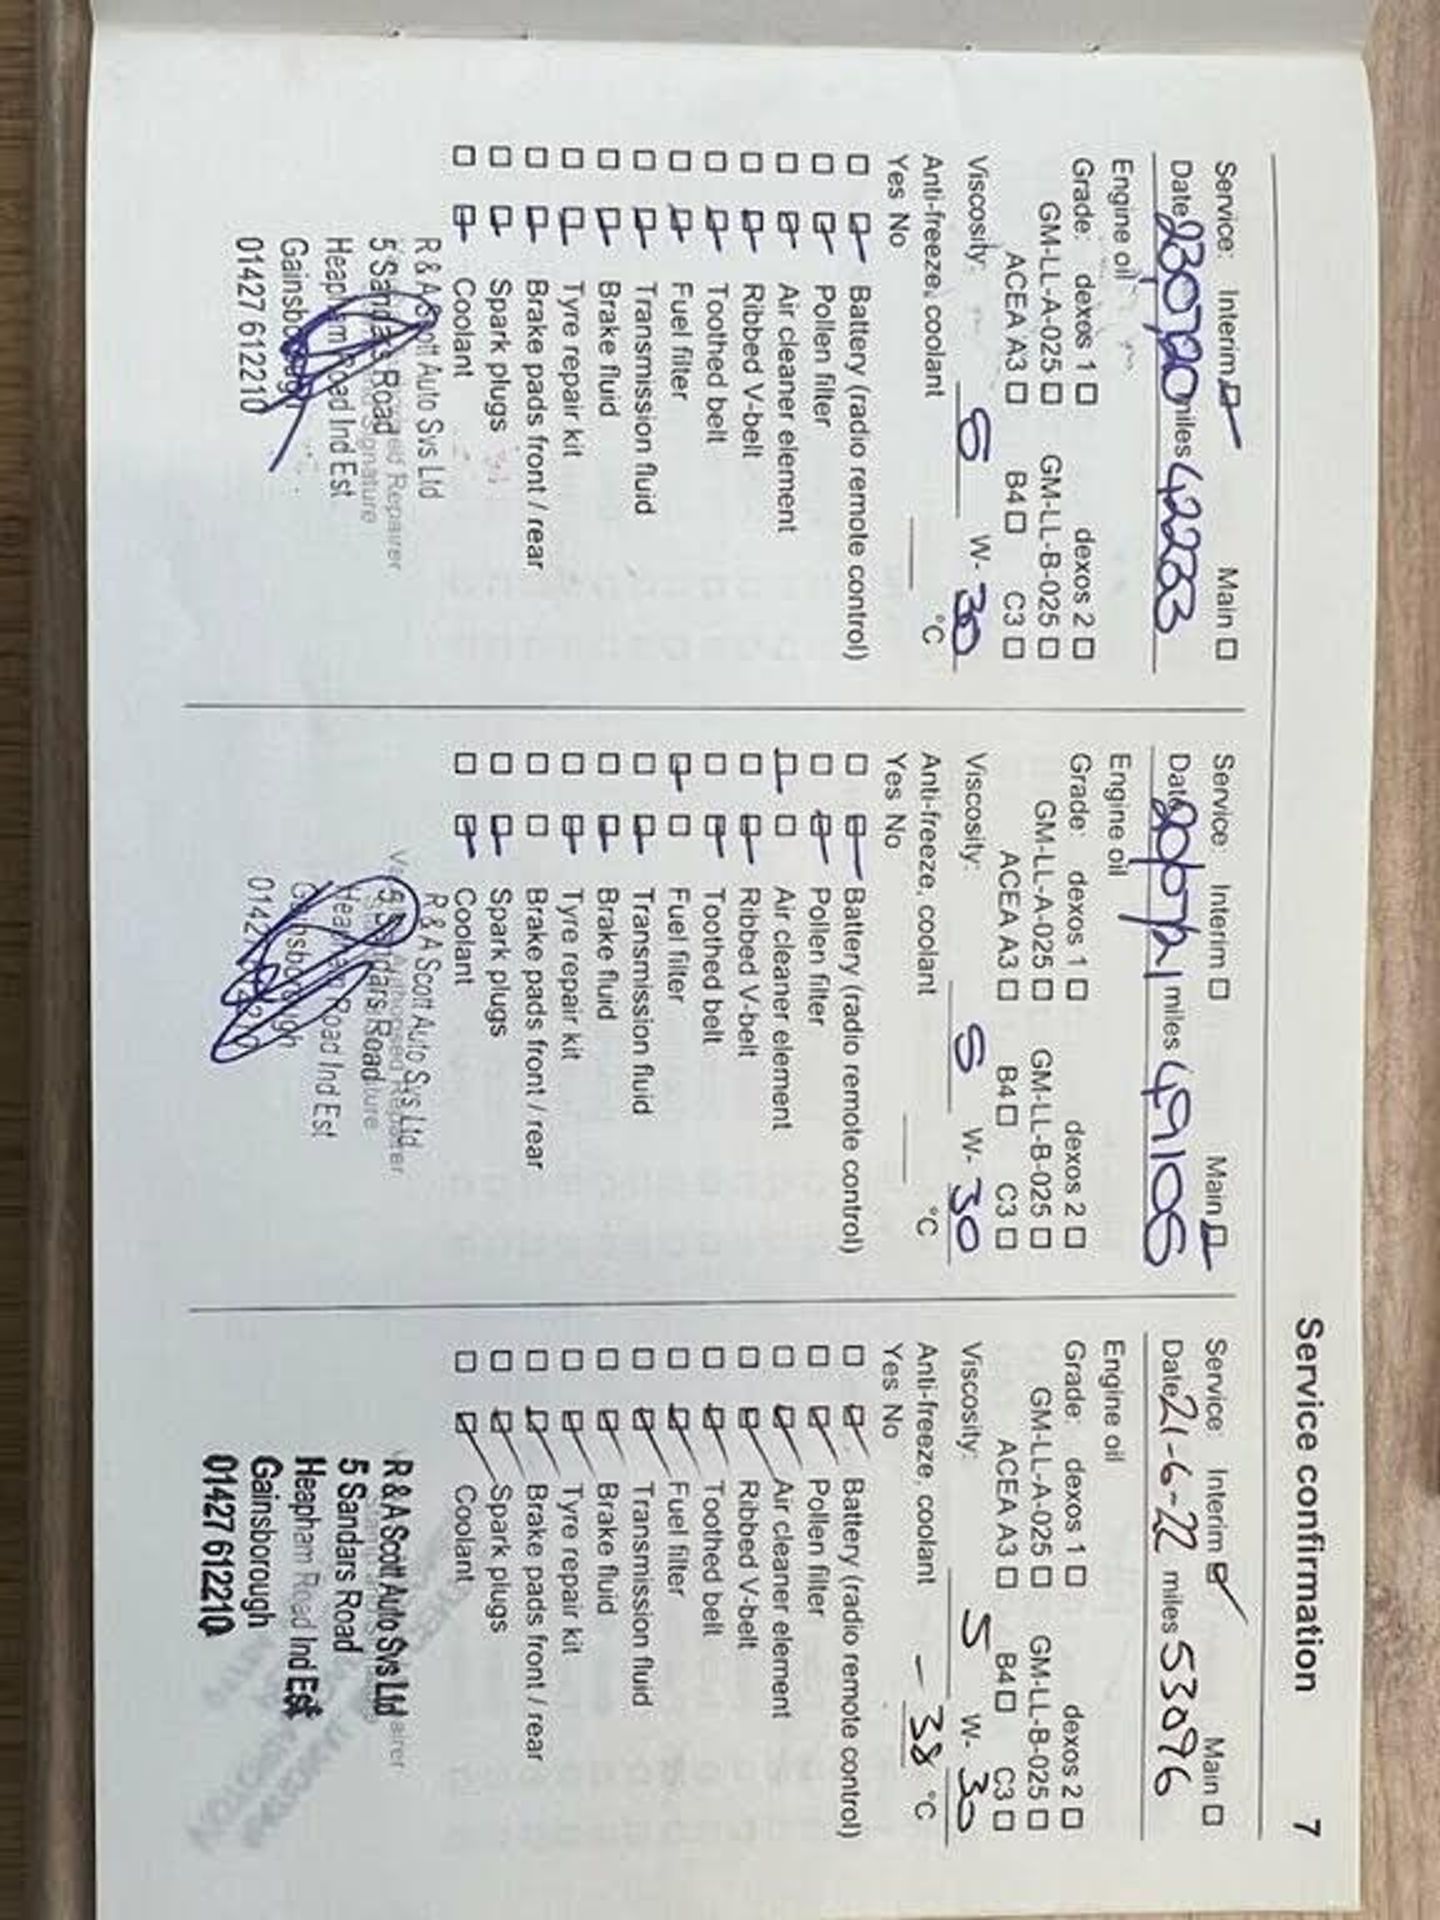 Service confirmation 7
Service: Interim Main
Date 230720 miles 42233
Engine oil
Grade: dexos 1 dexos 2
GM-LL-A-025 GM-LL-B-025
ACEA A3 B4 C3
Viscosity: 5 W- 30
Anti-freeze, coolant °C
Yes No
Battery (radio remote control)
Pollen filter
Air cleaner element
Ribbed V-belt
Toothed belt
Fuel filter
Transmission fluid
Brake fluid
Tyre repair kit
Brake pads front / rear
Spark plugs
Coolant
R & A Scott Auto Svs Ltd
5 Sandars Road
Heapham Road Ind Est
Gainsborough
01427 612210
Service: Interim Main
Date 200721 miles 49105
Engine oil
Grade: dexos 1 dexos 2
GM-LL-A-025 GM-LL-B-025
ACEA A3 B4 C3
Viscosity: 5 W- 30
Anti-freeze, coolant °C
Yes No
Battery (radio remote control)
Pollen filter
Air cleaner element
Ribbed V-belt
Toothed belt
Fuel filter
Transmission fluid
Brake fluid
Tyre repair kit
Brake pads front / rear
Spark plugs
Coolant
R & A Scott Auto Svs Ltd
5 Sandars Road
Heapham Road Ind Est
Gainsborough
01427 612210
Service: Interim Main
Date 21-6-22 miles 53096
Engine oil
Grade: dexos 1 dexos 2
GM-LL-A-025 GM-LL-B-025
ACEA A3 B4 C3
Viscosity: 5 W- 30
Anti-freeze, coolant - 38 °C
Yes No
Battery (radio remote control)
Pollen filter
Air cleaner element
Ribbed V-belt
Toothed belt
Fuel filter
Transmission fluid
Brake fluid
Tyre repair kit
Brake pads front / rear
Spark plugs
Coolant
R & A Scott Auto Svs Ltd
5 Sandars Road
Heapham Road Ind Est
Gainsborough
01427 612210